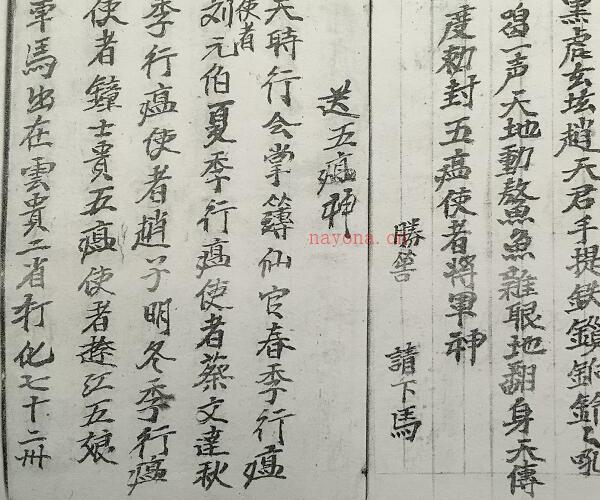 黑虎玄坛趙天君手提鉄鎖銅鈴々吼
唱一声天地動鰲魚難眼地翻身天傳
度勅封五瘟使者將軍神
勝筶 請下馬
送五瘟神
天時行会掌簿仙官春季行瘟
使者
刘元伯夏季行瘟使者蔡文達秋
季行瘟使者趙子明冬季行瘟
使者鐘士貴五瘟使者趙江五娘
車馬出在雲貴二省打化七十二州
nayona.cn